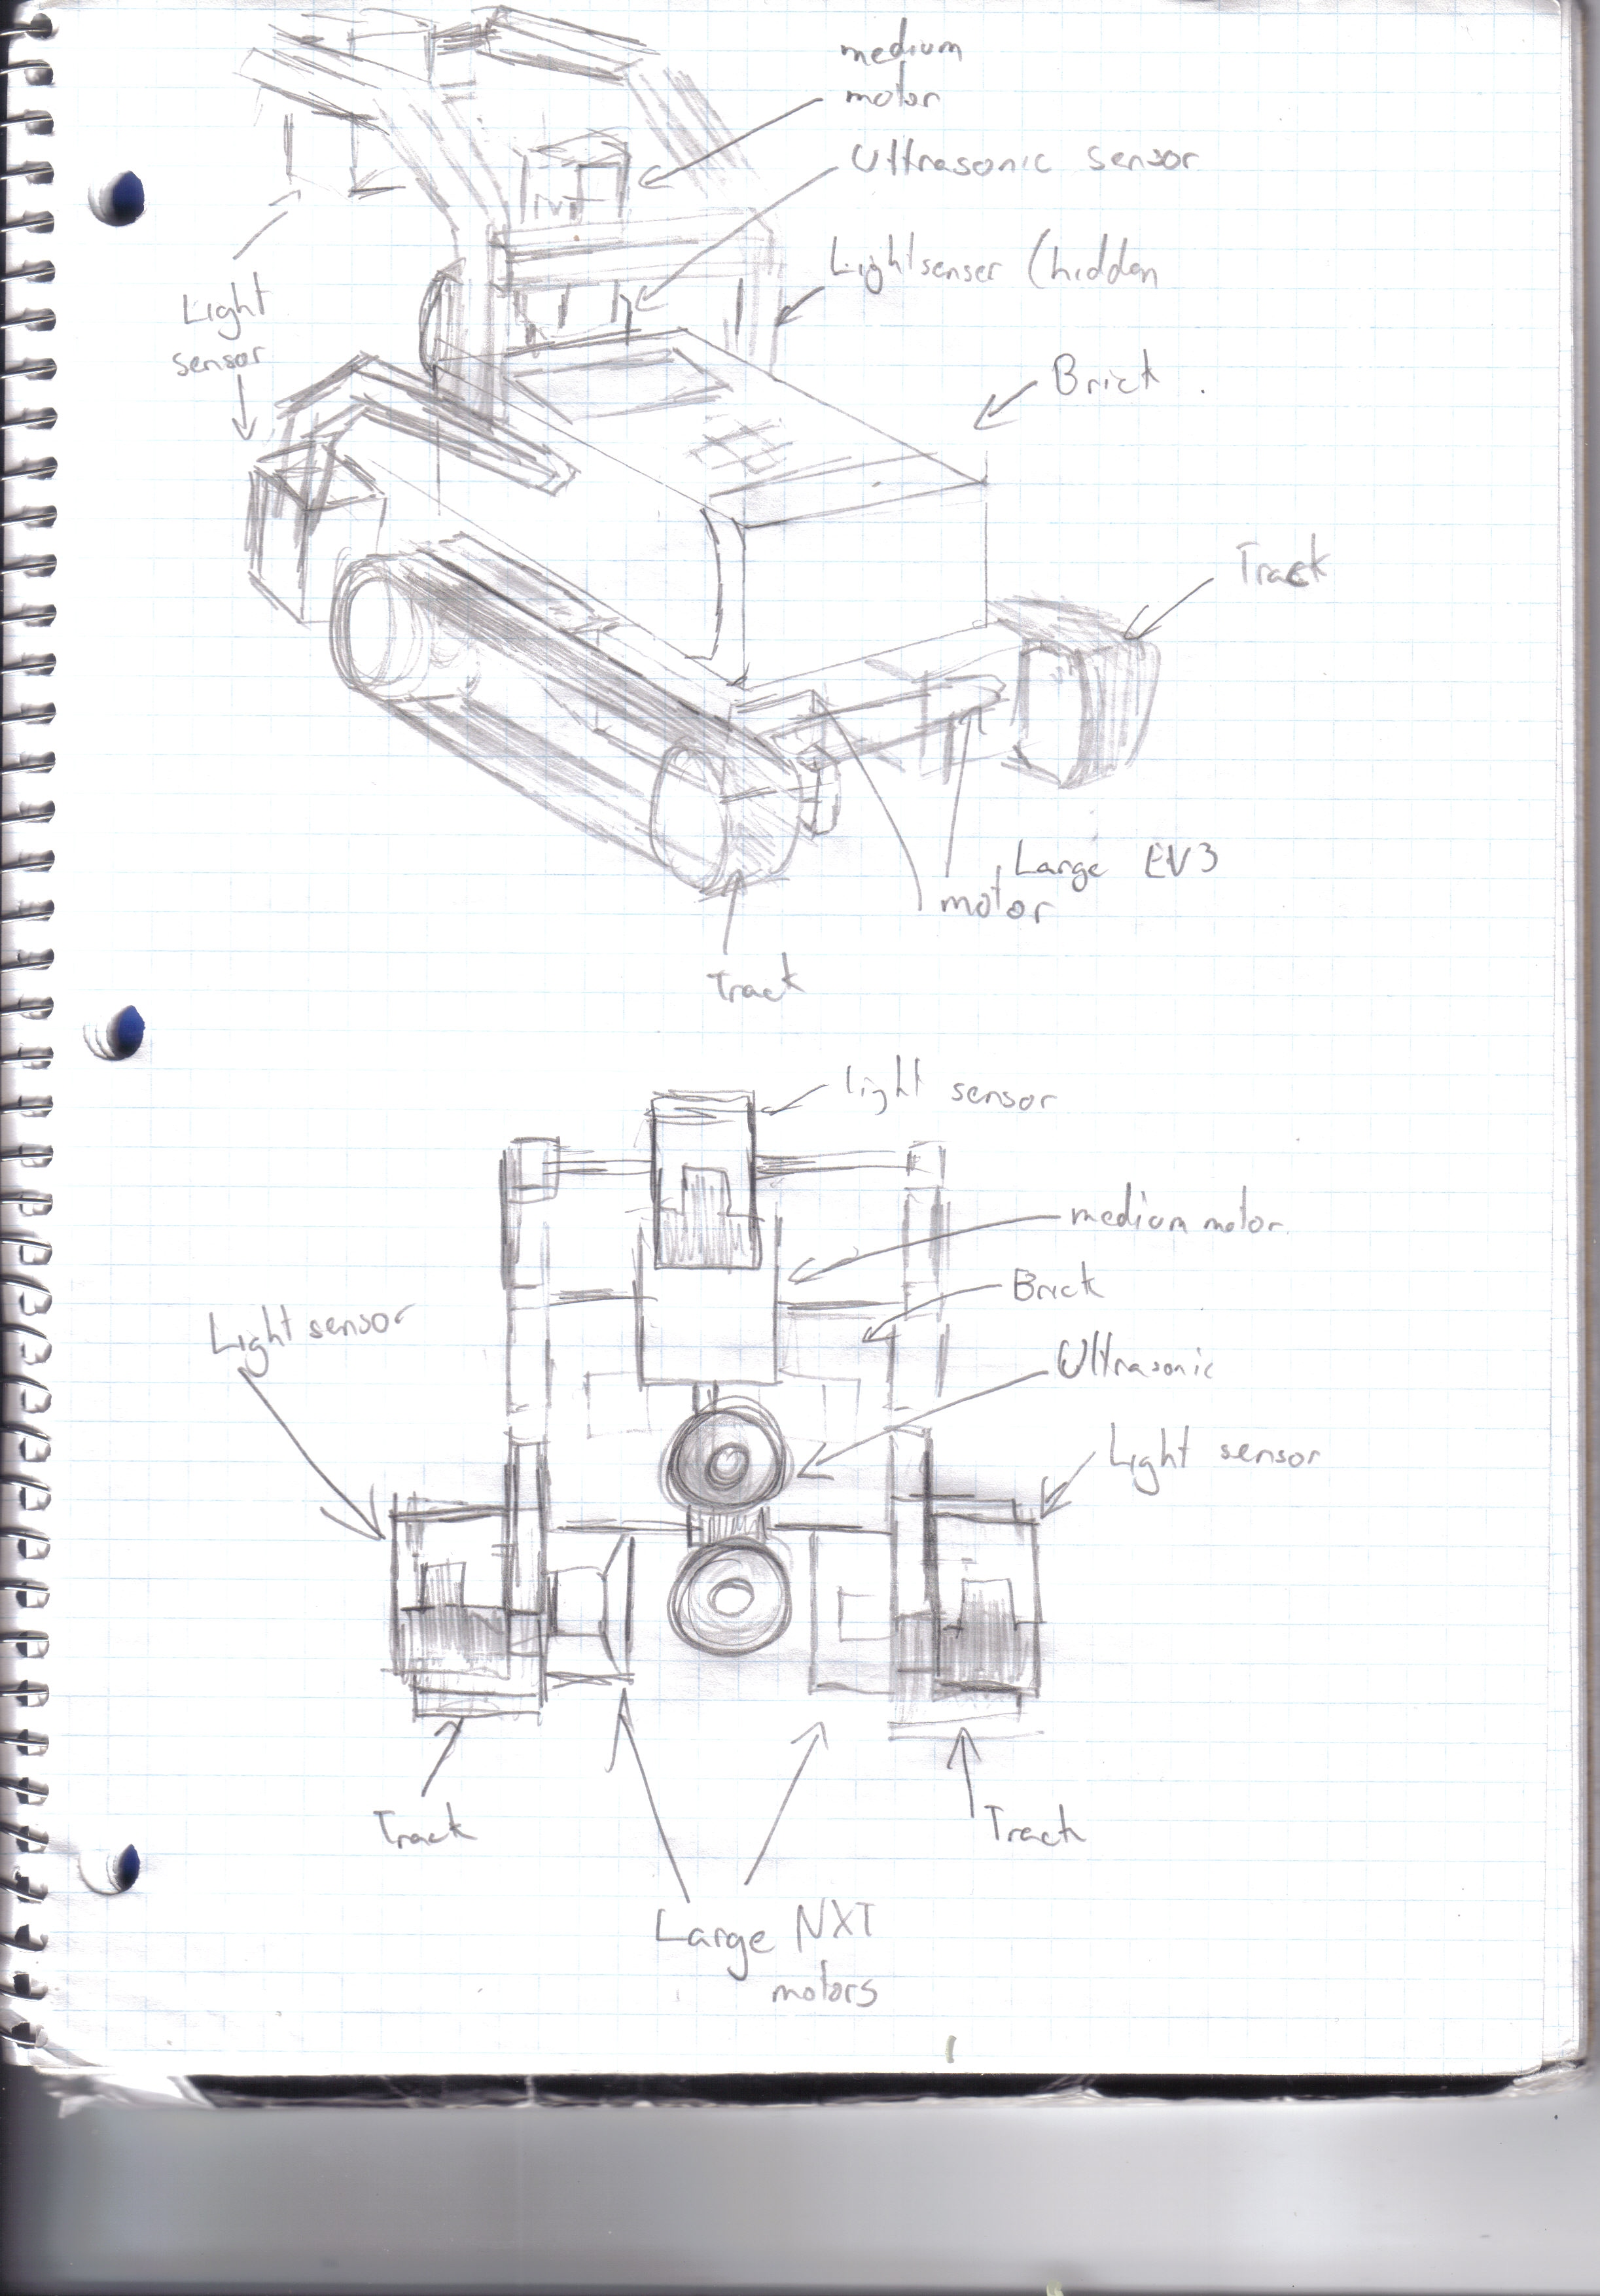 medium
motor
Ultrasonic sensor
Lightsenser (hidden
Light
sensor
Brick
Track
Large EV3
motor
Track
light sensor
medium motor
Brick
Light sensor
Ultrasonic
Light sensor
Track
Track
Large NXT
motors